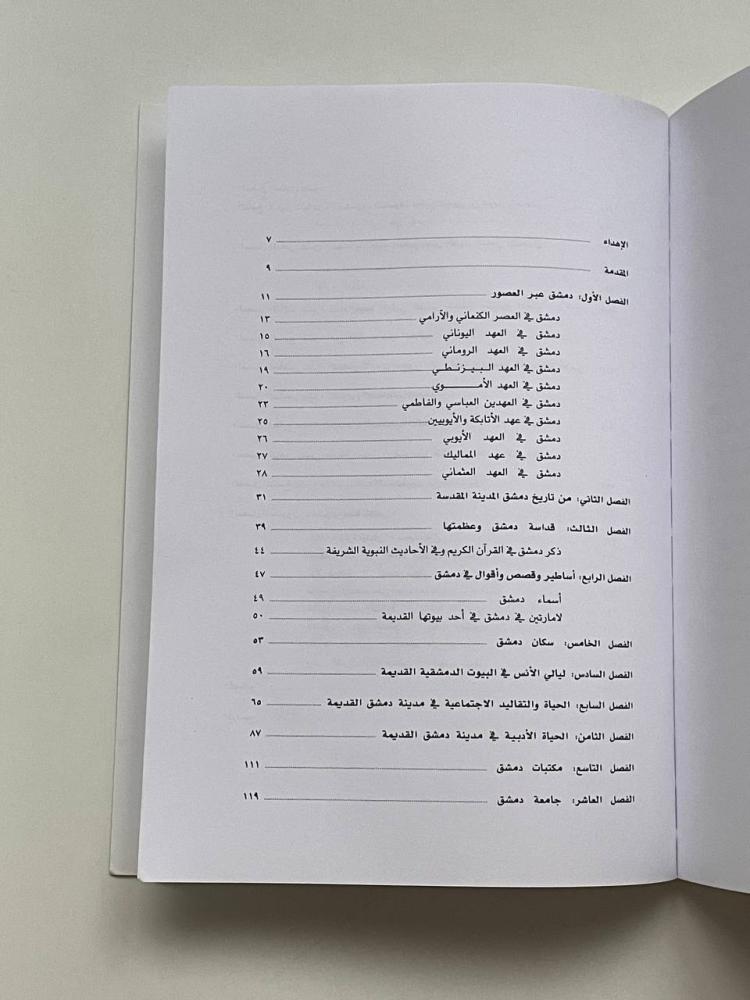 الإهداء ٧
المقدمة ٩
الفصل الأول: دمشق عبر العصور ١١
دمشق في العصر الكنعاني والآرامي ١٣
دمشق في العهد اليوناني ١٥
دمشق في العهد الروماني ١٦
دمشق في العهد البيزنطي ١٩
دمشق في العهد الأموي ٢٠
دمشق في العهدين العباسي والفاطمي ٢٣
دمشق في عهد الأتابكة والأيوبيين ٢٥
دمشق في العهد الأيوبي ٢٦
دمشق في عهد المماليك ٢٧
دمشق في العهد العثماني ٢٨
الفصل الثاني: من تاريخ دمشق المدينة المقدسة ٣١
الفصل الثالث: قداسة دمشق وعظمتها ٣٩
ذكر دمشق في القرآن الكريم وفي الأحاديث النبوية الشريفة ٤٤
الفصل الرابع: أساطير وقصص وأقوال في دمشق ٤٧
أسماء دمشق ٤٩
لامارتين في دمشق في أحد بيوتها القديمة ٥٠
الفصل الخامس: سكان دمشق ٥٣
الفصل السادس: ليالي الأنس في البيوت الدمشقية القديمة ٥٩
الفصل السابع: الحياة والتقاليد الاجتماعية في مدينة دمشق القديمة ٦٥
الفصل الثامن: الحياة الأدبية في مدينة دمشق القديمة ٨٧
الفصل التاسع: مكتبات دمشق ١١١
الفصل العاشر: جامعة دمشق ١١٩